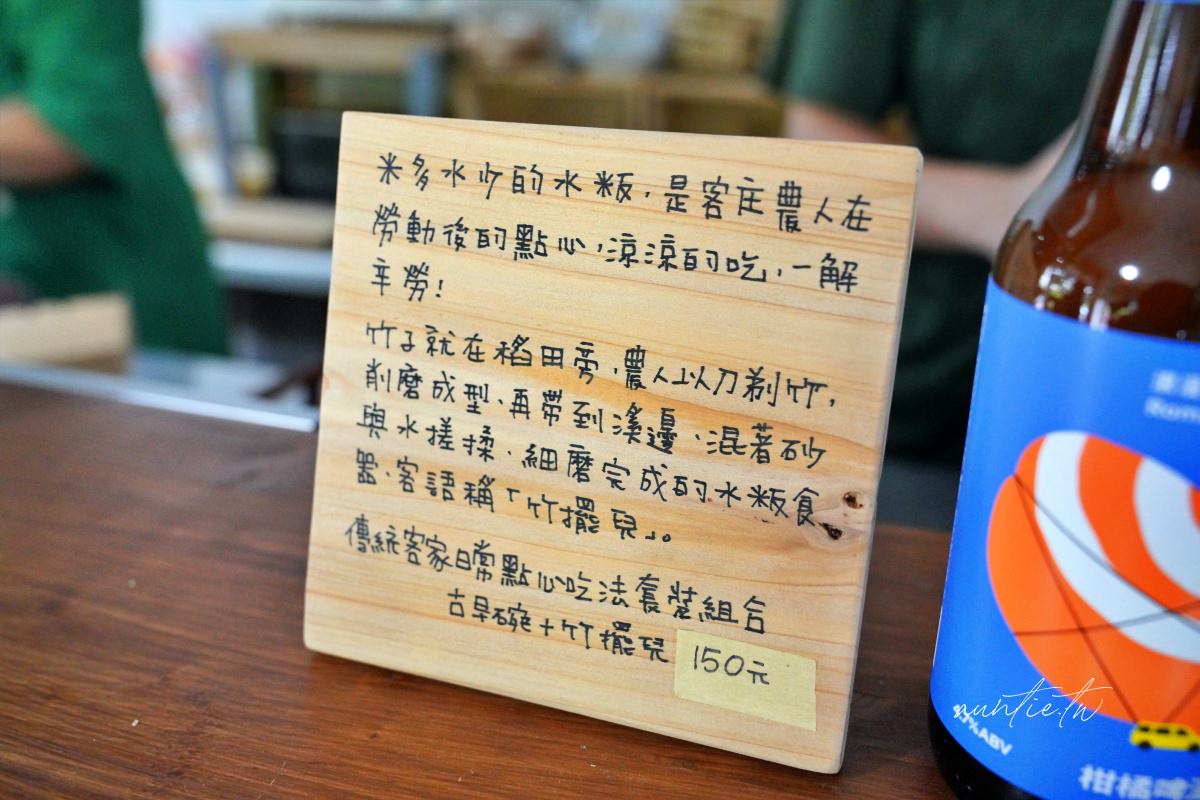 米多水少的水粄，是客庄農人在
勞動後的點心，涼涼的吃，一解
辛勞！
竹子就在稻田旁，農人以刀剃竹，
削磨成型、再帶到溪邊、混著砂
與水搓揉、細磨完成的水粄食
器，客語稱「竹擺兒」。
傳統客家日常點心吃法套裝組合
古早碗＋竹擺兒 150元
%ABV
柑橘啤
nuntie.tw